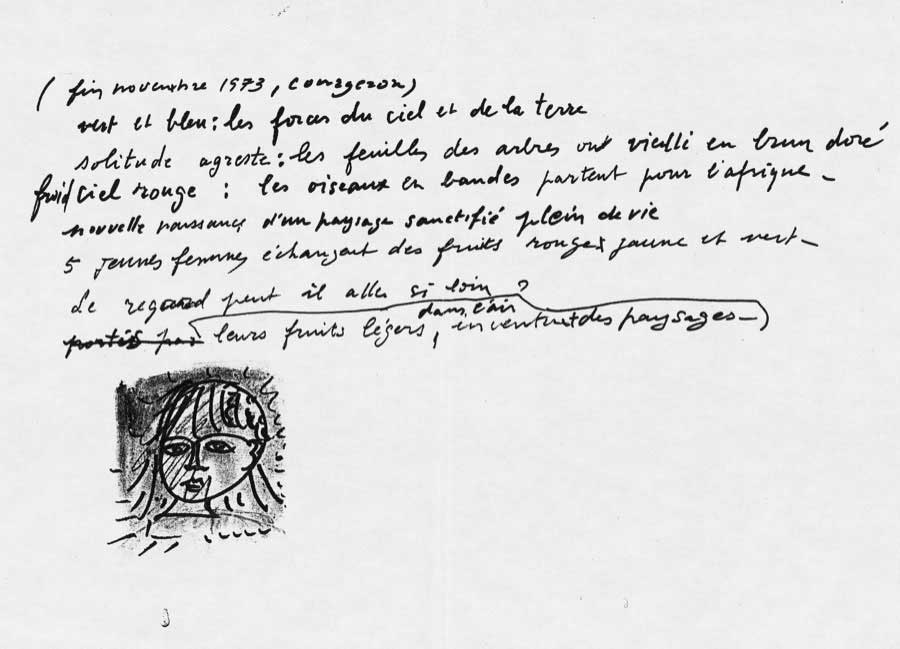 ( fin novembre 1973, courgeron)
vert et bleu : les forces du ciel et de la terre
solitude agreste : les feuilles des arbres ont vieilli en brun doré
froid/ciel rouge : les oiseaux en bandes partent pour l'afrique -
nouvelle naissance d'un paysage sanctifié plein de vie
5 jeunes femmes échangent des fruits rouges jaune et vert -
Le regard peut il aller si loin ?
dans l'air
portés par leurs fruits légers, inventent des paysages -)